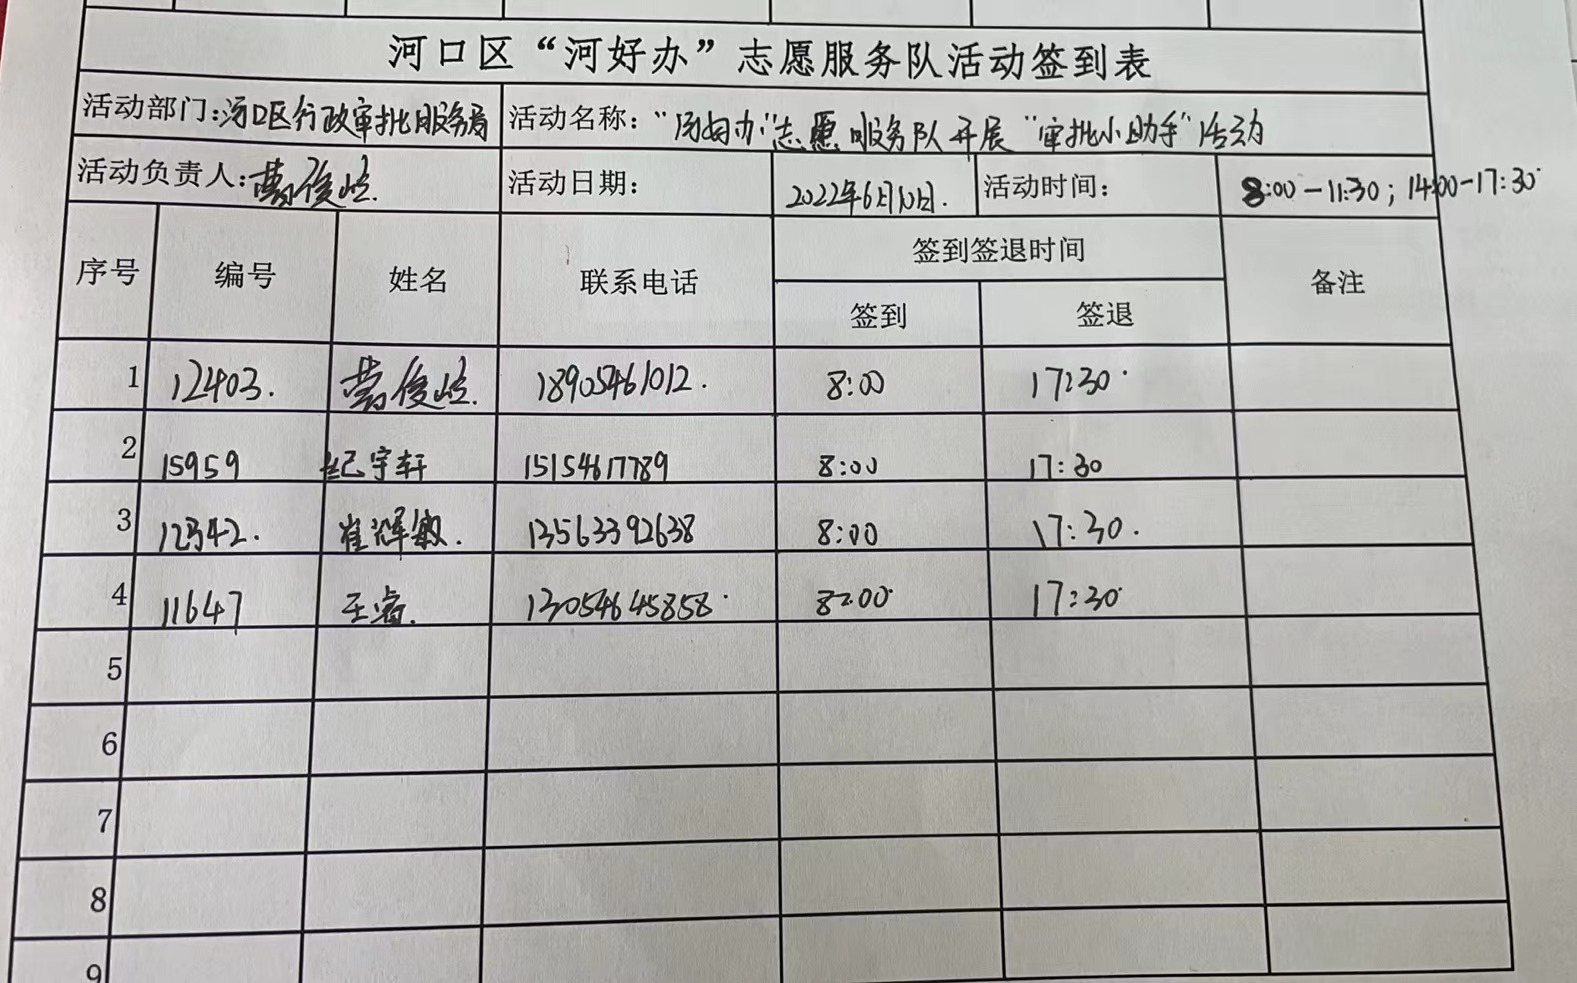 河口区“河好办”志愿服务队活动签到表
活动部门:河口区行政审批服务局 活动名称:“河好办”志愿服务队开展“审批小助手”活动
活动负责人: 活动日期: 2022年6月10日. 活动时间: 8:00-11:30;14:00-17:30
序号 编号 姓名 联系电话 签到签退时间 备注
签到 签退
1 12403. 18905461012. 8:00 17:30
2 15959 纪宇轩 15154617789 8:00 17:30
3 12342. 崔辉敏. 13563392638 8:00 17:30.
4 11647 王睿. 13054645858 8:00 17:30
5
6
7
8
9